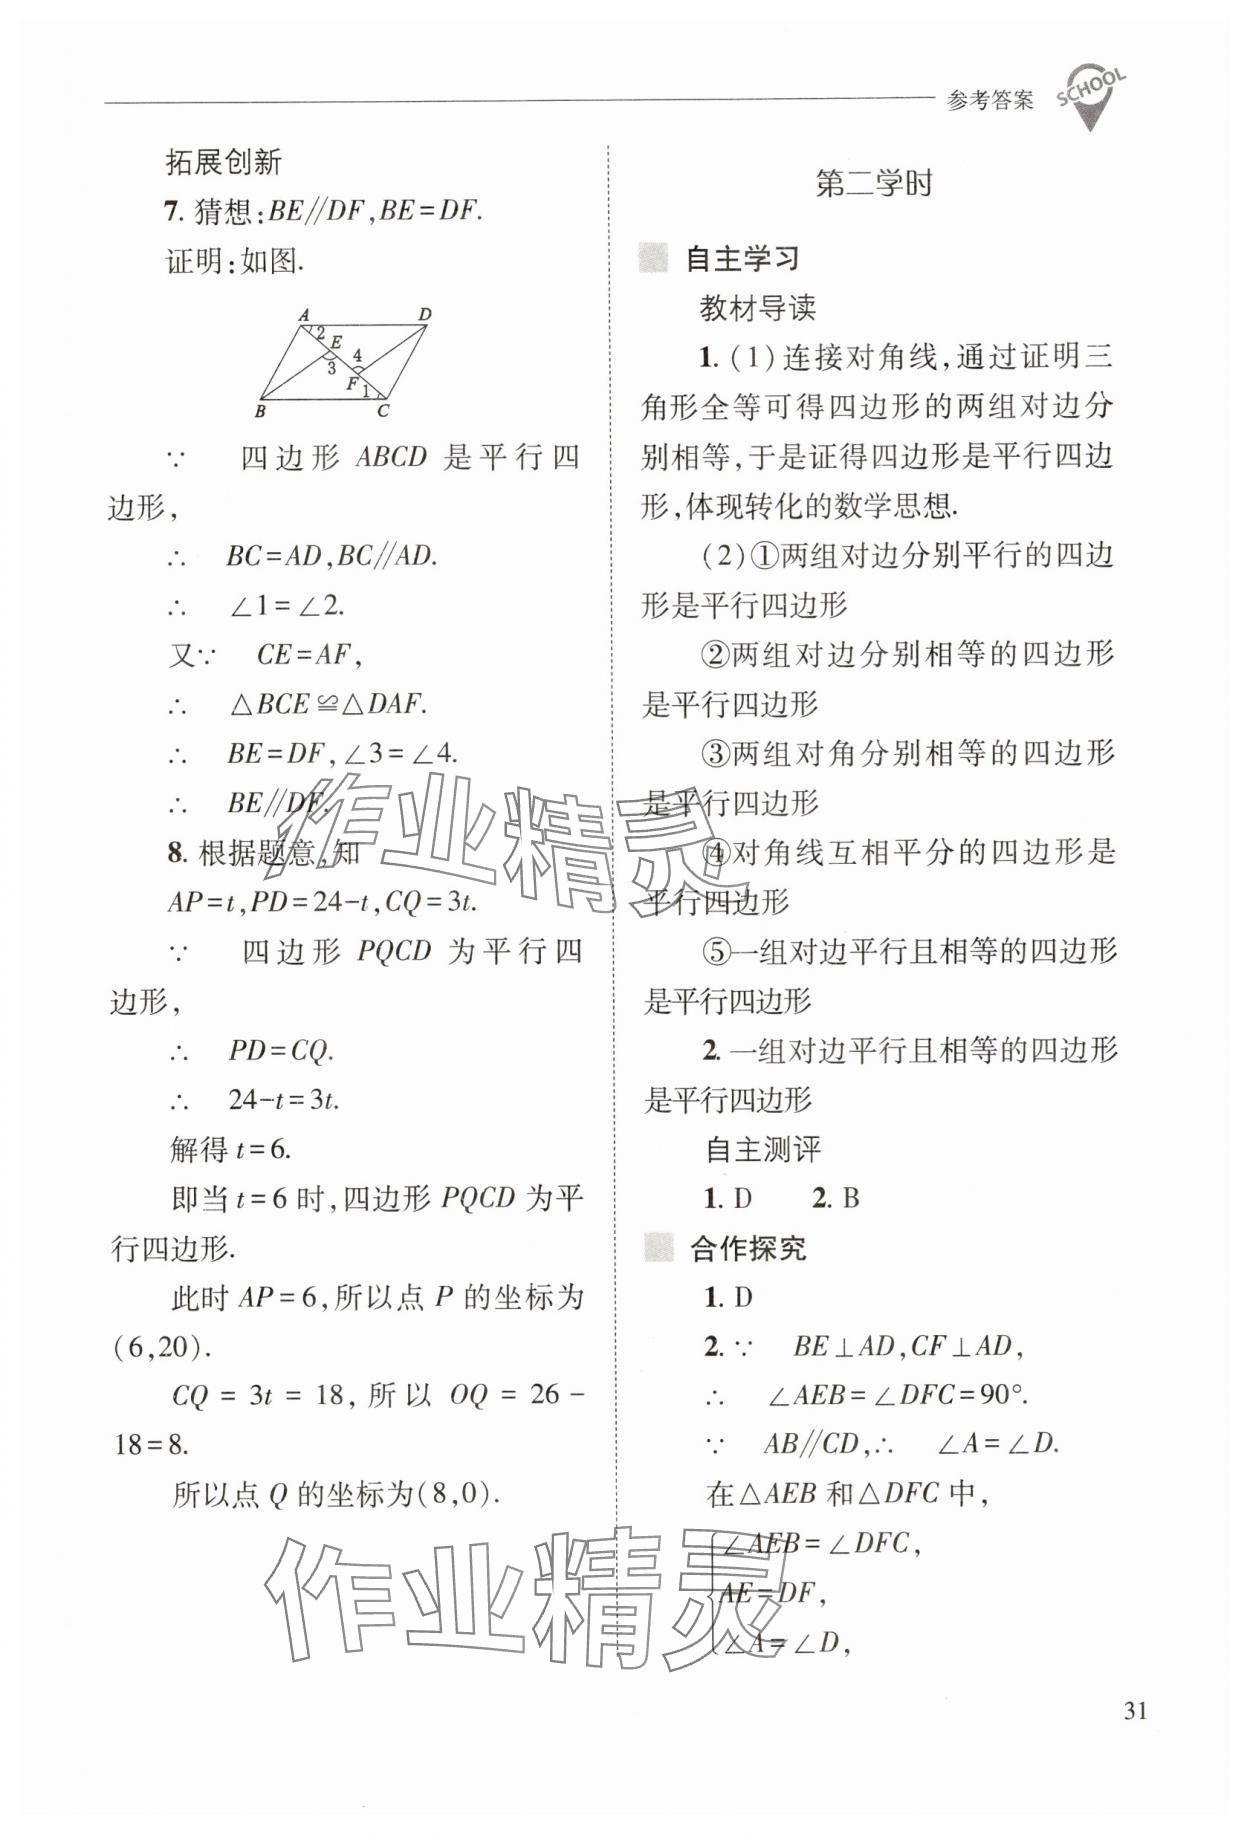 参考答案
SCHOOL
拓展创新
7. 猜想:BE∥DF,BE=DF.
证明:如图.
A D
2 E 4
3 F 1
B C
∵ 四边形 ABCD 是平行四
边形,
∴ BC=AD,BC∥AD.
∴ ∠1=∠2.
又∵ CE=AF,
∴ △BCE≌△DAF.
∴ BE=DF,∠3=∠4.
∴ BE∥DF.
8. 根据题意,知
AP=t,PD=24-t,CQ=3t.
∵ 四边形 PQCD 为平行四
边形,
∴ PD=CQ.
∴ 24-t=3t.
解得 t=6.
即当 t=6 时,四边形 PQCD 为平
行四边形.
此时 AP=6,所以点 P 的坐标为
(6,20).
CQ = 3t = 18, 所以 OQ = 26 -
18=8.
所以点 Q 的坐标为(8,0).
第二学时
自主学习
教材导读
1. (1)连接对角线,通过证明三
角形全等可得四边形的两组对边分
别相等,于是证得四边形是平行四边
形,体现转化的数学思想.
(2)①两组对边分别平行的四边
形是平行四边形
②两组对边分别相等的四边形
是平行四边形
③两组对角分别相等的四边形
是平行四边形
④对角线互相平分的四边形是
平行四边形
⑤一组对边平行且相等的四边形
是平行四边形
2. 一组对边平行且相等的四边形
是平行四边形
自主测评
1. D 2. B
合作探究
1. D
2. ∵ BE⊥AD,CF⊥AD,
∴ ∠AEB=∠DFC=90°.
∵ AB∥CD,∴ ∠A=∠D.
在△AEB 和△DFC 中,
∠AEB=∠DFC,
AE=DF,
∠A=∠D,
作业精灵
作业精灵
31